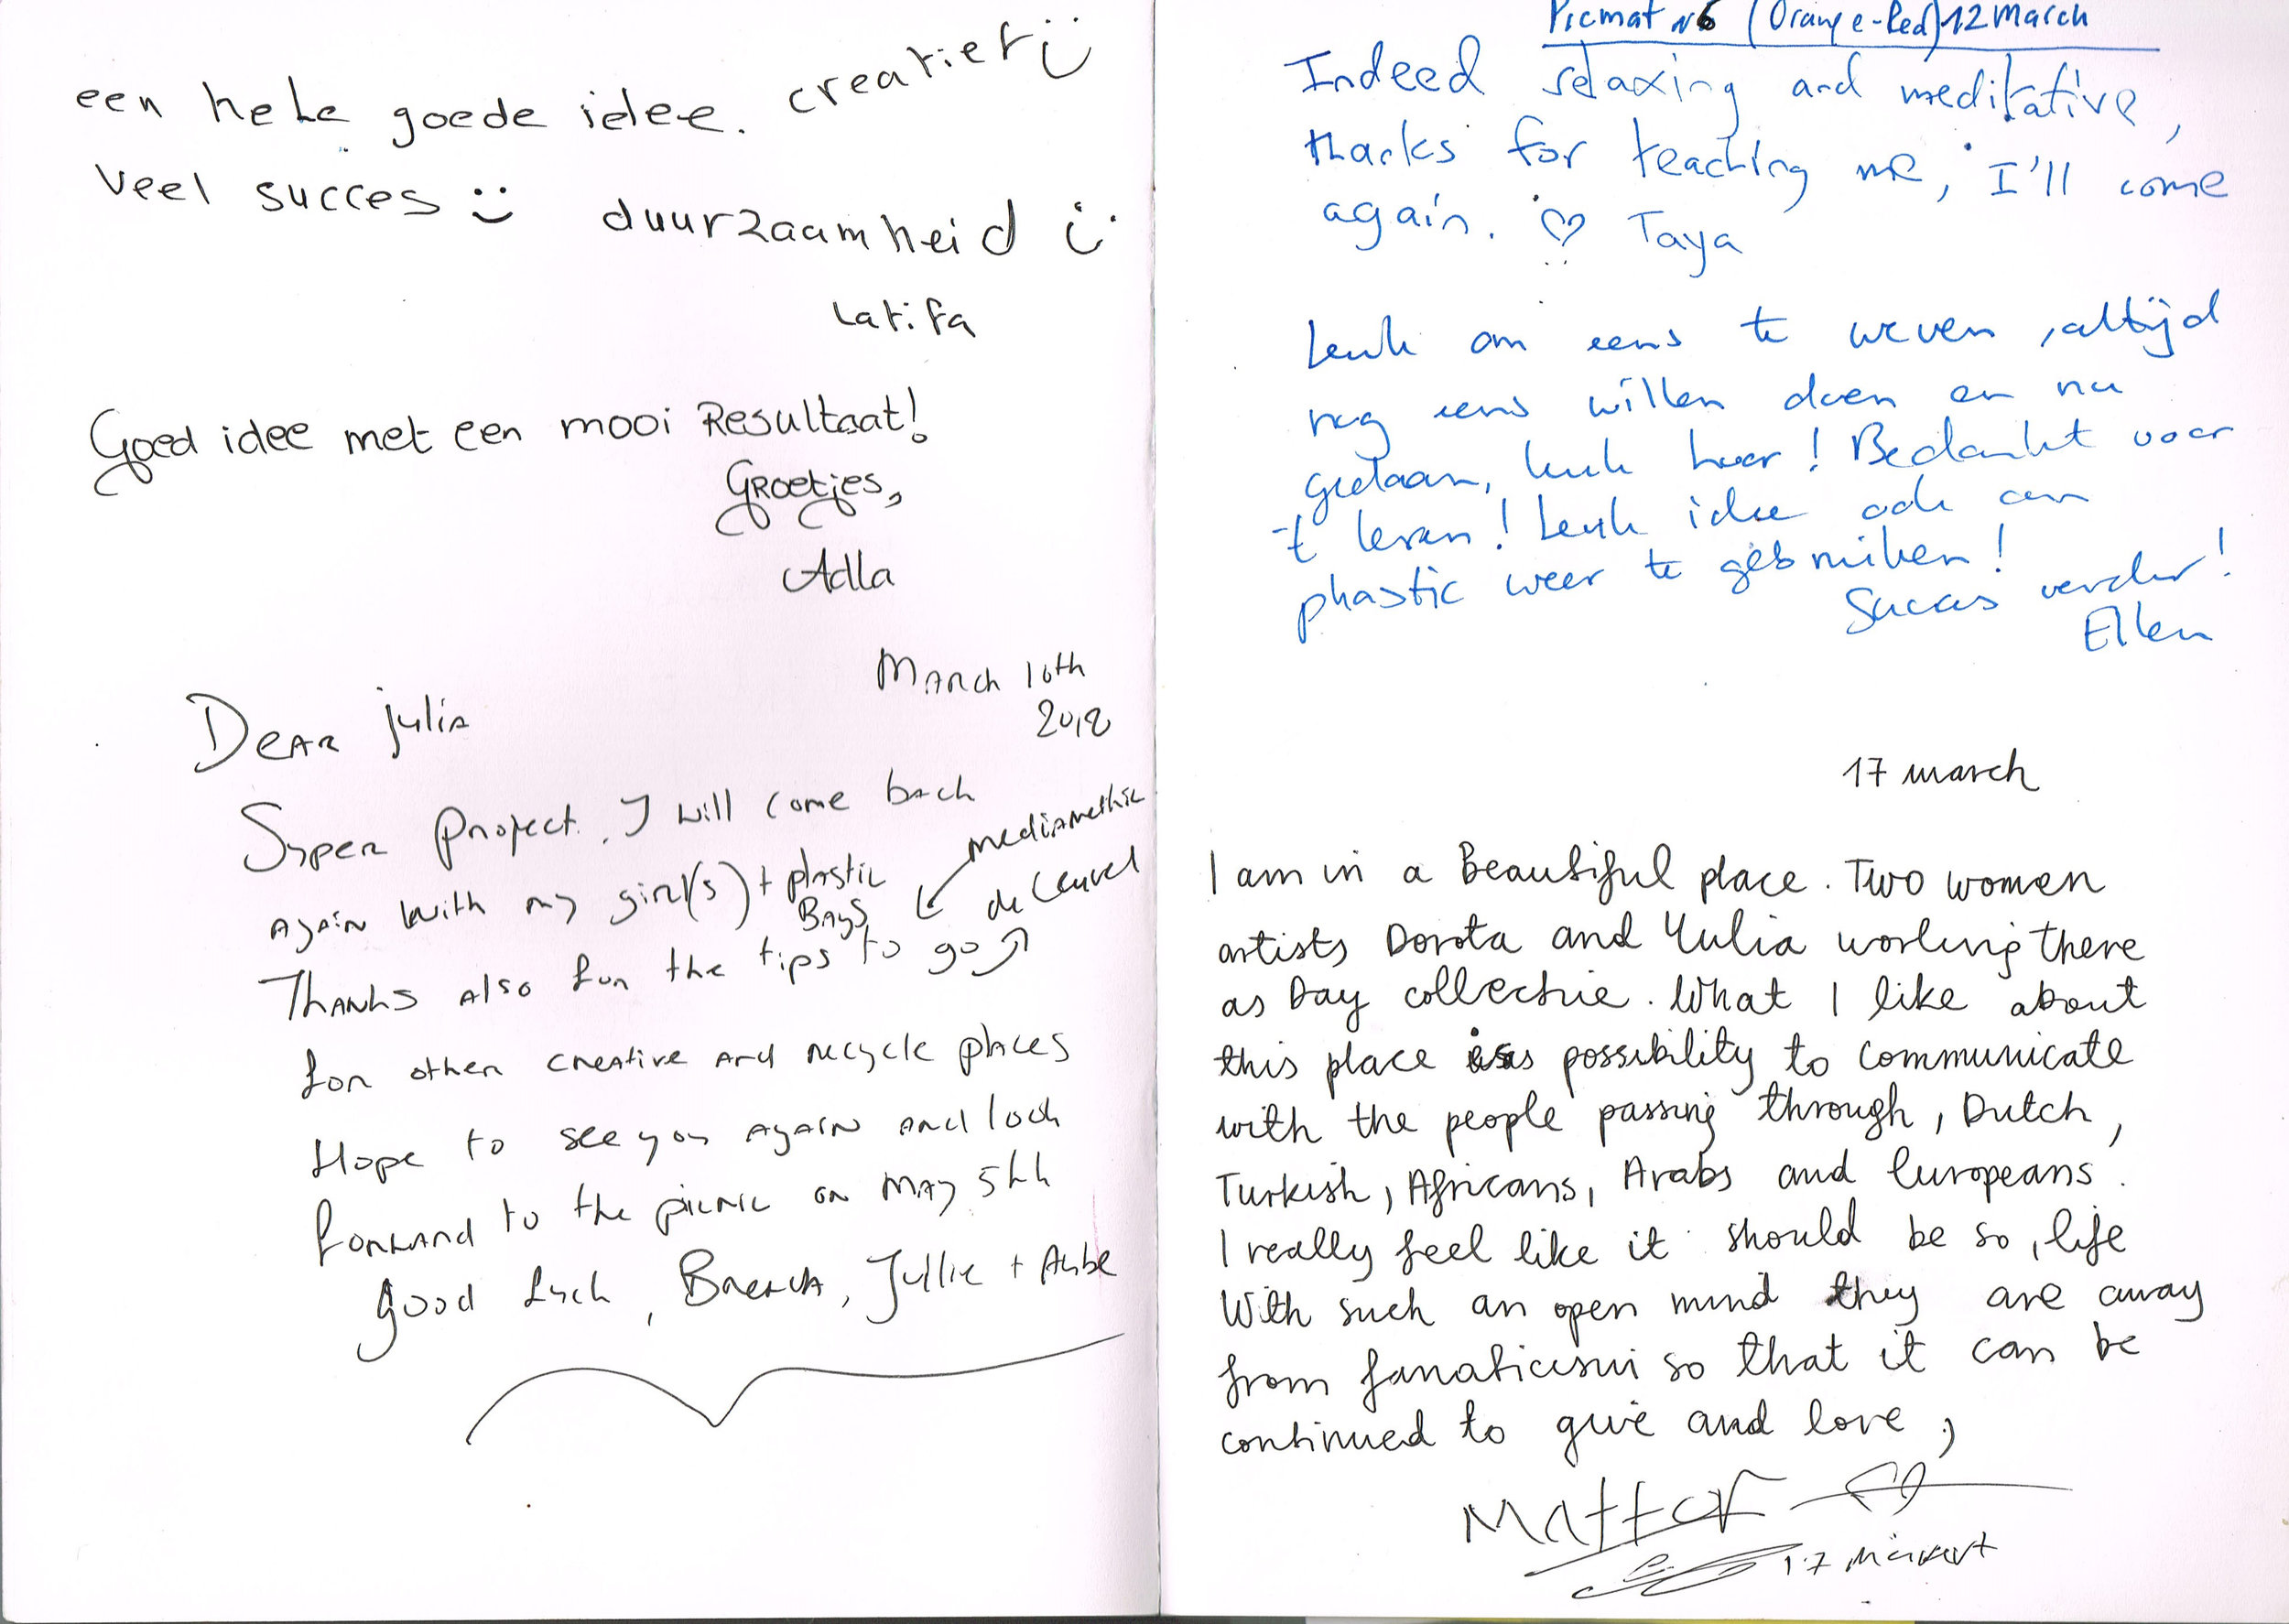 een hele goede idee. creatief :)
veel succes :) duurzaamheid :)
Latifa
Goed idee met een mooi Resultaat!
Groetjes,
Adla
March 10th
2018
Dear Julia
Super project. I will come back
again with my girl(s) + plastic
Bags
mediamathic
de Ceuvel
Thanks also for the tips to go
for other creative and recycle places
Hope to see you again and look
forward to the picnic on May 5th
good luck, Brenda, Jullie +
Picmat N6 (Orange-Red) 12 March
Indeed relaxing and meditative,
thanks for teaching me, I'll come
again. ♡ Taya
Leuk om eens te weven, altijd
nog eens willen doen en nu
gedaan, leuk hoor! Bedankt voor
't leren! Leuk idee ook om
plastic weer te gebruiken!
Succes verder!
Ellen
17 march
I am in a Beautiful place. Two women
artists Dorota and Yulia working there
as Day collectie. What I like about
this place is possibility to communicate
with the people passing through, Dutch,
Turkish, Africans, Arabs and Europeans.
I really feel like it should be so, life
With such an open mind they are away
from fanaticism so that it can be
continued to give and love,
17